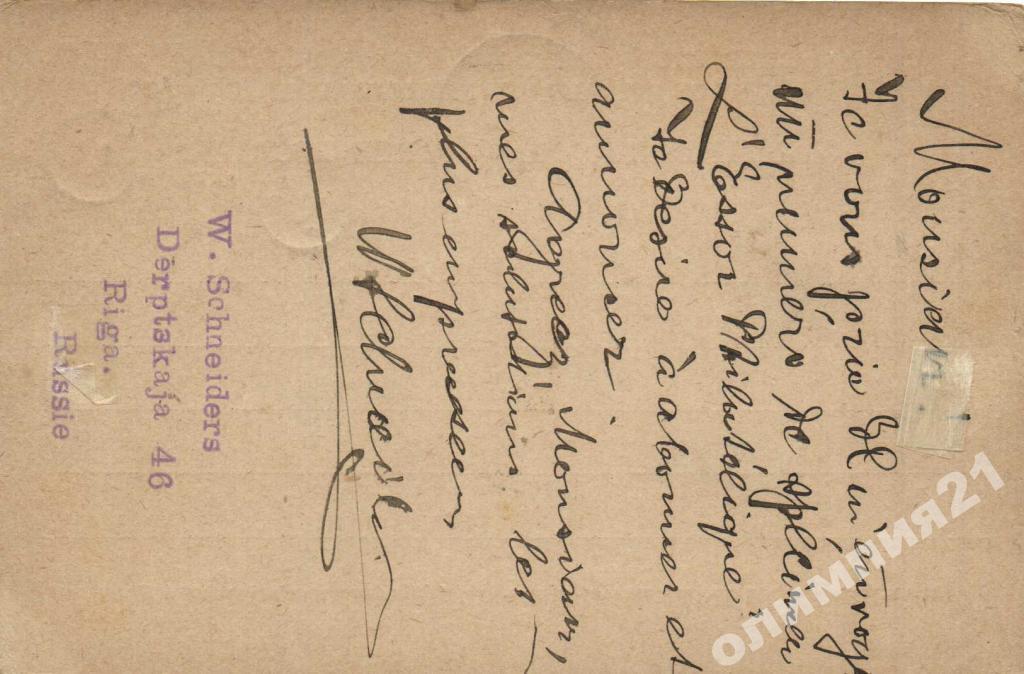 Monsieur.
Je vous prie de m'envoy
un numero de splecimen
"L'Essor Philatélique"
Je Desire à abonner et
annonser
Agreez Monsieur,
mes salutations les
plus empressees,
W Schneider
W. Schneiders
Derptskaja 46
Riga.
Russie
олимпия21